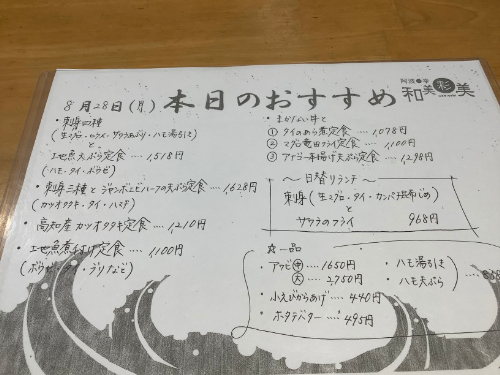 8月28日(月) 本日のおすすめ
阿波の幸
和美彩美
・刺身四種
と
地魚天ぷら定食 ‥‥ 1,518円
(ハモ・タイ・ボウゼ)
・刺身三種とジャンボエビハーフの天ぷら定食 ‥‥ 1,628円
(カツオタタキ・タイ・ハマチ)
・高知産カツオタタキ定食 ‥‥ 1,210円
・地魚煮付け定食 ‥‥ 1,100円
(ボウゼ・タイ・ブリなど)
・まかない丼と
① タイのあら煮定食 ‥‥ 1,078円
② マグロ竜田フライ定食 ‥‥ 1,100円
③ 天ぷら定食 ‥‥ 1,298円
〜 日替りランチ 〜
刺身(生マグロ・タイ・カンパチ昆布じめ)
と
サワラのフライ
968円
☆一品
・アワビ ㊥ ‥‥ 1650円
㊅ ‥‥ 2,750円
・小えびからあげ ‥‥ 440円
・ホタテバター ‥‥ 495円
・ハモ湯引き
・ハモ天ぷら